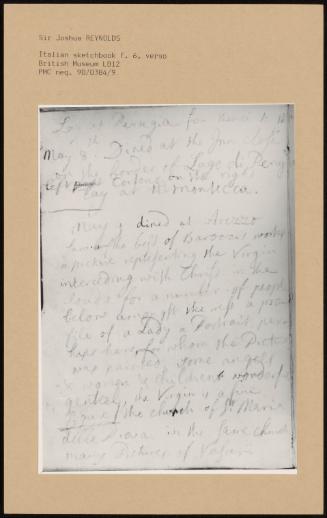 Sir Joshua REYNOLDS
Italian sketchbook f. 6, verso
British Museum LB12
PMC neg. 90/0384/9
Lay at Perugia from thence to
May 8. Dined at the Inn close
on the border of Lago di Perugia
left Cortone on the right
lay at Monteccia.
May 9 dined at Arezzo
saw the best of Barocci works
a picture representing the Virgin
interceding with Christ in the
clouds for a number of people
below amongst the rest a pro
file of a Lady a Portrait per
haps her for whom the Picture
was painted, some angels
& women & children wonderfully
genteel, the Virgin is a fine
figure / the church of St Maria
della Piava. in the same church
many Pictures of Vasari